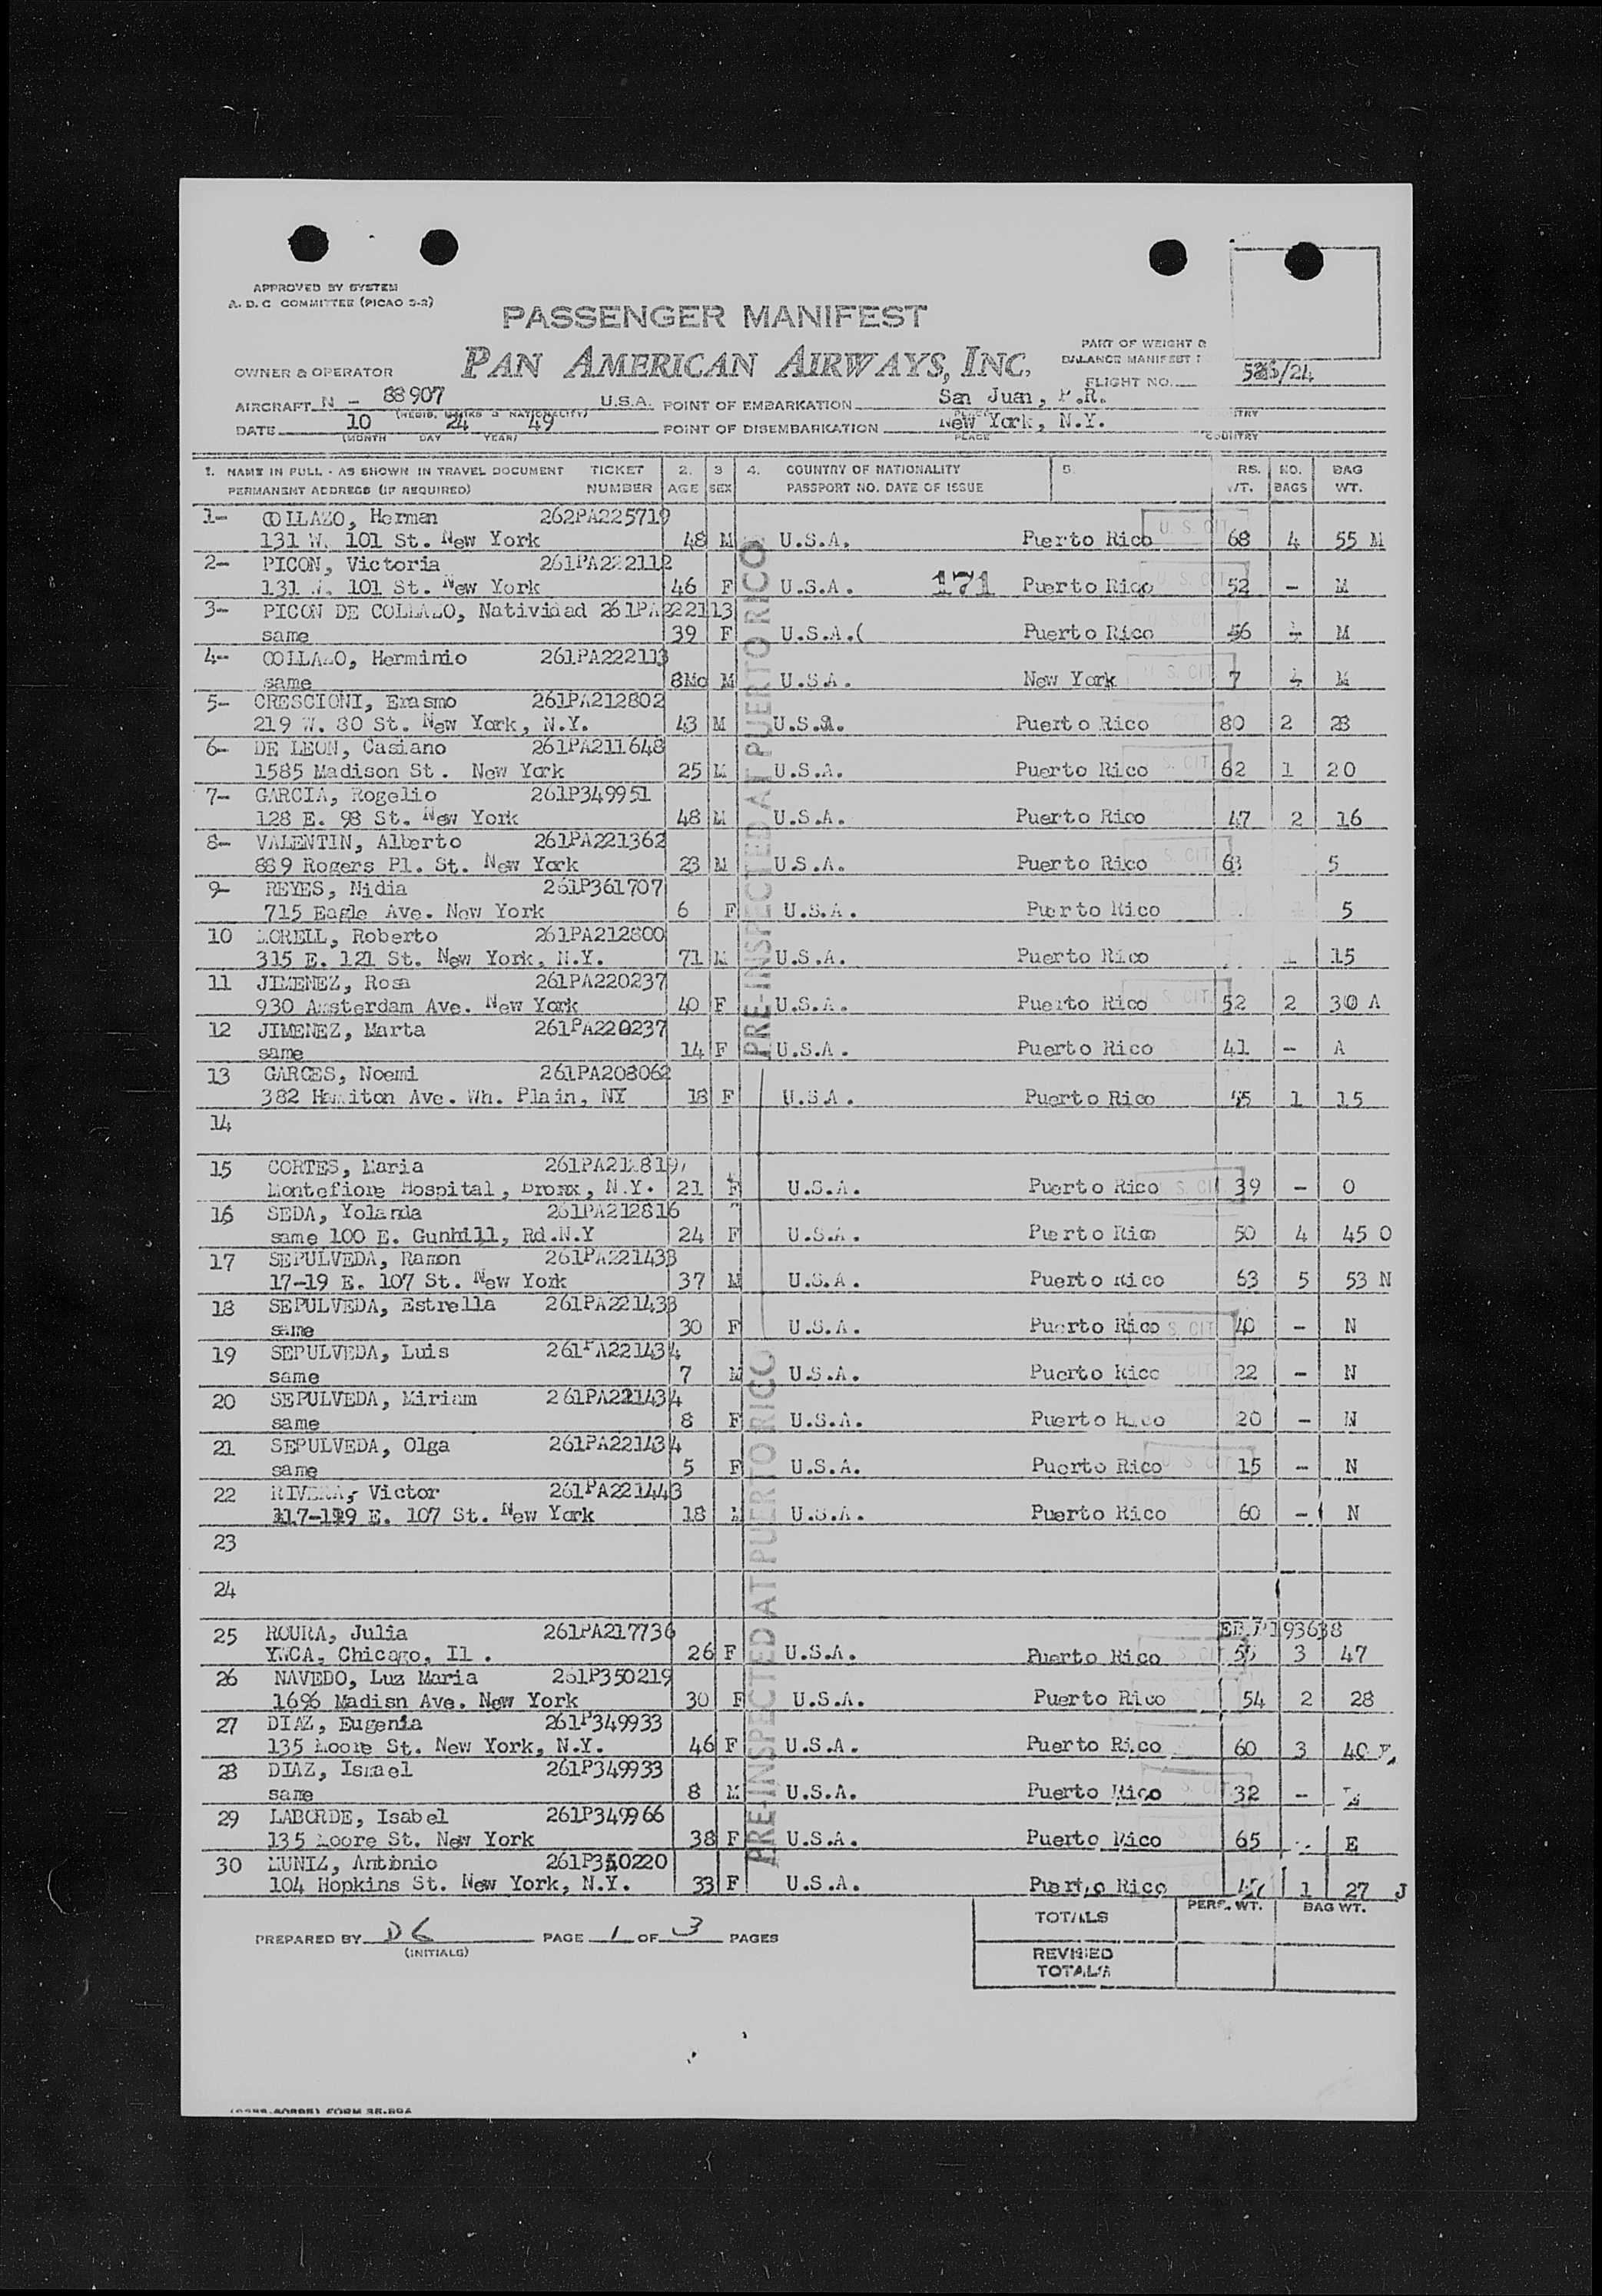 APPROVED BY SYSTEM
A. D. C COMMITTEE (PICAO S-2)
PASSENGER MANIFEST
PAN AMERICAN AIRWAYS, INC.
PART OF WEIGHT &
BALANCE MANIFEST
OWNER & OPERATOR
FLIGHT NO. /24
AIRCRAFT N - 88907 U.S.A. POINT OF EMBARKATION San Juan, P.R.
(REGIS. MARKS & NATIONALITY) PLACE
DATE 10 24 49 POINT OF DISEMBARKATION New York, N.Y.
(MONTH DAY YEAR) PLACE COUNTRY
1. NAME IN FULL - AS SHOWN IN TRAVEL DOCUMENT TICKET 2. 3 4. COUNTRY OF NATIONALITY 5. RS. NO. BAG
PERMANENT ADDRESS (IF REQUIRED) NUMBER AGE SEX PASSPORT NO. DATE OF ISSUE WT. BAGS WT.
1- COLLAZO, Herman 262PA225719
131 W. 101 St. New York 48 M U.S.A. Puerto Rico U. S. CIT 68 4 55 M
2- PICON, Victoria 261PA222112
131 W. 101 St. New York 46 F U.S.A. 171 Puerto Rico U. S. CIT 52 - M
3- PICON DE COLLAZO, Natividad 261PA222113
same 39 F U.S.A.( Puerto Rico 56 M
4-- COLLAZO, Herminio 261PA222113
same 8Mo M U.S.A. New York S. CIT 7 M
5- CRESCIONI, Erasmo 261PA212802
219 W. 80 St. New York, N.Y. 43 M U.S.A. Puerto Rico 80 2 28
6- DE LEON, Casiano 261PA211648
1585 Madison St. New York 25 M U.S.A. Puerto Rico S. CIT 62 1 20
7- GARCIA, Rogelio 261P349951
128 E. 98 St. New York 48 M U.S.A. Puerto Rico 47 2 16
8- VALENTIN, Alberto 261PA221362
889 Rogers Pl. St. New York 23 M U.S.A. Puerto Rico S. CIT 63 5
9- REYES, Nidia 261P361707
715 Eagle Ave. New York 6 F U.S.A. Puerto Rico 5
10 MORELL, Roberto 261PA212800
315 E. 121 St. New York, N.Y. 71 M U.S.A. Puerto Rico 1 15
11 JIMENEZ, Rosa 261PA220237
930 Amsterdam Ave. New York 40 F U.S.A. Puerto Rico S. CIT 52 2 30 A
12 JIMENEZ, Marta 261PA220237
same 14 F U.S.A. Puerto Rico 41 - A
13 GARCES, Noemi 261PA208062
382 Hamiton Ave. Wh. Plain, NY 18 F U.S.A. Puerto Rico 45 1 15
14
15 CORTES, Maria 261PA212819
Montefiore Hospital, Bronx, N.Y. 21 F U.S.A. Puerto Rico S. CI 39 - O
16 SEDA, Yolanda 261PA212816
same 100 E. Gunhill, Rd.N.Y 24 F U.S.A. Puerto Rico 50 4 45 O
17 SEPULVEDA, Ramon 261PA221433
17-19 E. 107 St. New York 37 M U.S.A. Puerto Rico 63 5 53 N
18 SEPULVEDA, Estrella 261PA221433
same 30 F U.S.A. Puerto Rico S. CIT 40 - N
19 SEPULVEDA, Luis 261PA221434
same 7 M U.S.A. Puerto Rico 22 - N
20 SEPULVEDA, Miriam 261PA221434
same 8 F U.S.A. Puerto Rico 20 - N
21 SEPULVEDA, Olga 261PA221434
same 5 F U.S.A. Puerto Rico 15 - N
22 RIVERA, Victor 261PA221443
117-119 E. 107 St. New York 18 M U.S.A. Puerto Rico 60 - N
23
24
25 ROURA, Julia 261PA217736
YWCA, Chicago, Il . 26 F U.S.A. Puerto Rico 55 3 47
26 NAVEDO, Luz Maria 261P350219
1696 Madisn Ave. New York 30 F U.S.A. Puerto Rico 54 2 28
27 DIAZ, Eugenia 261P349933
135 Moore St. New York, N.Y. 46 F U.S.A. Puerto Rico 60 3 40
28 DIAZ, Ismael 261P349933
same 8 M U.S.A. Puerto Rico S. CIT 32 -
29 LABORDE, Isabel 261P349966
135 Moore St. New York 38 F U.S.A. Puerto Rico 65 E
30 MUNIZ, Antonio 261P350220
104 Hopkins St. New York, N.Y. 33 F U.S.A. Puerto Rico 1 27 J
PRE-INSPECTED AT PUERTO RICO
PRE-INSPECTED AT PUERTO RICO
TOTALS PERS. WT. BAG WT.
PREPARED BY DG PAGE 1 OF 3 PAGES
(INITIALS)
REVISED
TOTALS